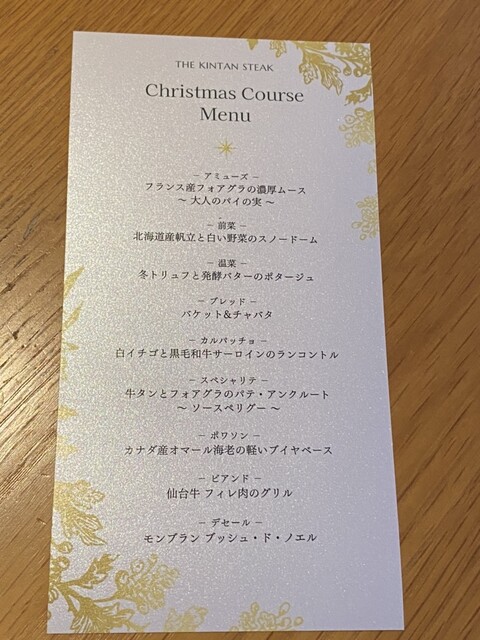 THE KINTAN STEAK
Christmas Course
Menu
― アミューズ ―
フランス産フォアグラの濃厚ムース
～ 大人のパイの実 ～
― 前菜 ―
北海道産帆立と白い野菜のスノードーム
― 温菜 ―
冬トリュフと発酵バターのポタージュ
― ブレッド ―
バケット&チャバタ
― カルパッチョ ―
白イチゴと黒毛和牛サーロインのランコントル
― スペシャリテ ―
牛タンとフォアグラのパテ・アンクルート
～ ソースペリグー ～
― ポワソン ―
カナダ産オマール海老の軽いブイヤベース
― ビアンド ―
仙台牛 フィレ肉のグリル
― デセール ―
モンブラン ブッシュ・ド・ノエル